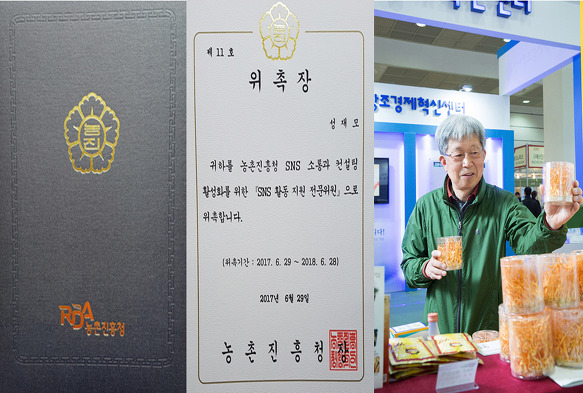 농진
RDA 농촌진흥청
제 11 호
위 촉 장
성 재 모
귀하를 농촌진흥청 SNS 소통과 컨설팅
활성화를 위한 「SNS 활동 지원 전문위원」으로
위촉합니다.
(위촉기간 : 2017. 6. 29 ~ 2018. 6. 28)
2017년 6월 29일
농 촌 진 흥 청 장
창조경제혁신센터